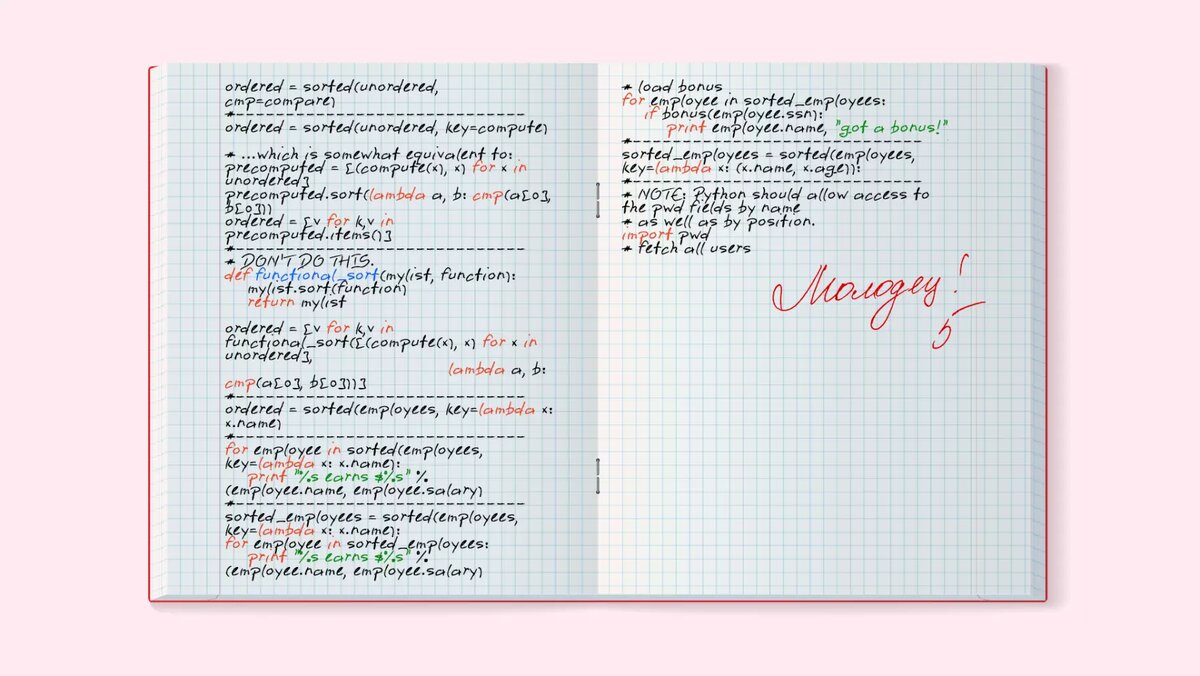 ordered = sorted(unordered,
cmp=compare)
*------------------------------
ordered = sorted(unordered, key=compute)
* ...which is somewhat equivalent to:
precomputed = [(compute(x), x) for x in
unordered]
precomputed.sort(lambda a, b: cmp(a[0],
b[0]))
ordered = [v for k,v in
precomputed.items()]
*------------------------------
* DON'T DO THIS.
def functional_sort(mylist, function):
mylist.sort(function)
return mylist
ordered = [v for k,v in
functional_sort([(compute(x), x) for x in
unordered],
lambda a, b:
cmp(a[0], b[0]))]
*------------------------------
ordered = sorted(employees, key=lambda x:
x.name)
*------------------------------
for employee in sorted(employees,
key=lambda x: x.name):
print "%s earns $%s" %
(employee.name, employee.salary)
*------------------------------
sorted_employees = sorted(employees,
key=lambda x: x.name):
for employee in sorted_employees:
print "%s earns $%s" %
(employee.name, employee.salary)
* load bonus
for employee in sorted_employees:
if bonus(employee.ssn):
print employee.name, "got a bonus!"
*------------------------------
sorted_employees = sorted(employees,
key=lambda x: (x.name, x.age)):
*------------------------------
* NOTE: Python should allow access to
the pwd fields by name
* as well as by position.
import pwd
* fetch all users
Молодец!
5